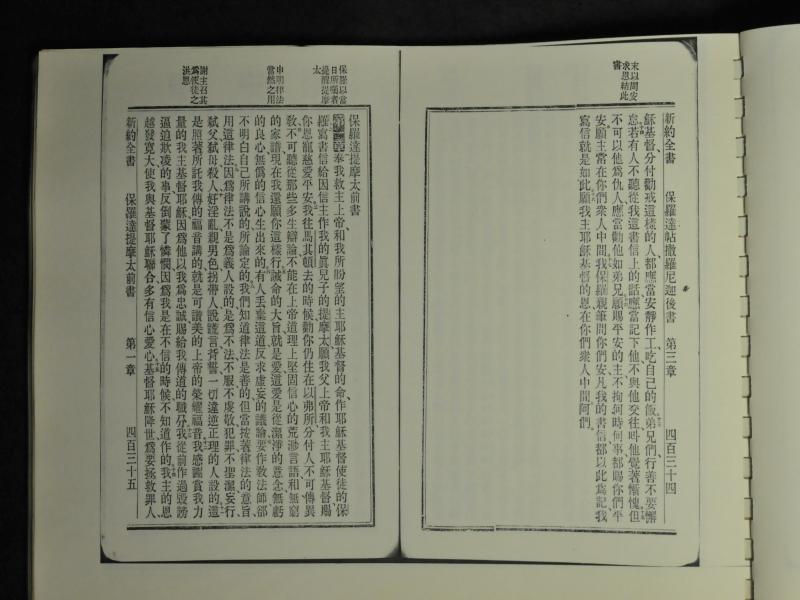 新約全書　保羅達帖撒羅尼迦後書　第三章　四百三十四
末以問安
求恩結此
書
穌基督、分付勸戒這樣的人、都應當安靜作工、吃自己的飯、弟兄們行善不要懈
怠、若有人不聽從我這書信上的話、應當記下他、不與他交往、叫他覺著慚愧、但
不可以他爲仇人、應當勸他如弟兄、願賜平安的主、不拘何時何事、都賜你們平
安、願主常在你們衆人中間、我保羅親筆問你們安、凡我的書信都以此爲記、我
寫信就是如此、願我主耶穌基督的恩、在你們衆人中間、阿們、
保羅以當
日所囑者
提醒提摩
太
申明律法
當然之用
謝主召其
爲使徒之
洪恩
保羅達提摩太前書
奉我救主上帝、和我所盼望的主耶穌基督的命、作耶穌基督使徒的保
羅、寫書信給因信主作我的眞兒子的提摩太、願我父上帝、和我主耶穌基督、賜
你恩寵慈愛平安、我往馬其頓去的時候、勸你仍住在以弗所、分付人不可傳異
敎、不可聽從那些多生辯論、不能在上帝道理上堅固信心的荒渺言語、和無窮
的家譜、現在我還願你這樣行、誡命的大旨、就是愛、這愛是從潔淨的意念、無虧
的良心、無僞的信心生出來的、有人丟棄這道、反求虛妄的議論、要作敎法師、卻
不明白自己所講說的、所論定的、我們知道律法是善的、但當按著律法的意旨
用這律法、因爲律法不是爲義人設的、是爲不法不服、不虔敬、犯罪、不聖潔、妄行、
弑父、弑母、殺人、好淫亂、親男色、拐帶人、說謊言、背誓、一切違逆正理的人設的、這
是照著所託我傳的福音講的、就是可讚美的上帝的榮耀福音、我感謝賞我力
量的我主基督耶穌、因爲他以我爲忠誠、賜給我傳道的職分、我從前作過毀謗
逼迫欺凌的事、反倒蒙了憐憫、因爲我是在不信的時候、不知道作的、我主的恩
越發寬大、使我與基督耶穌聯合、多有信心愛心、基督耶穌降世、爲要拯救罪人、
新約全書　保羅達提摩太前書　第一章　四百三十五